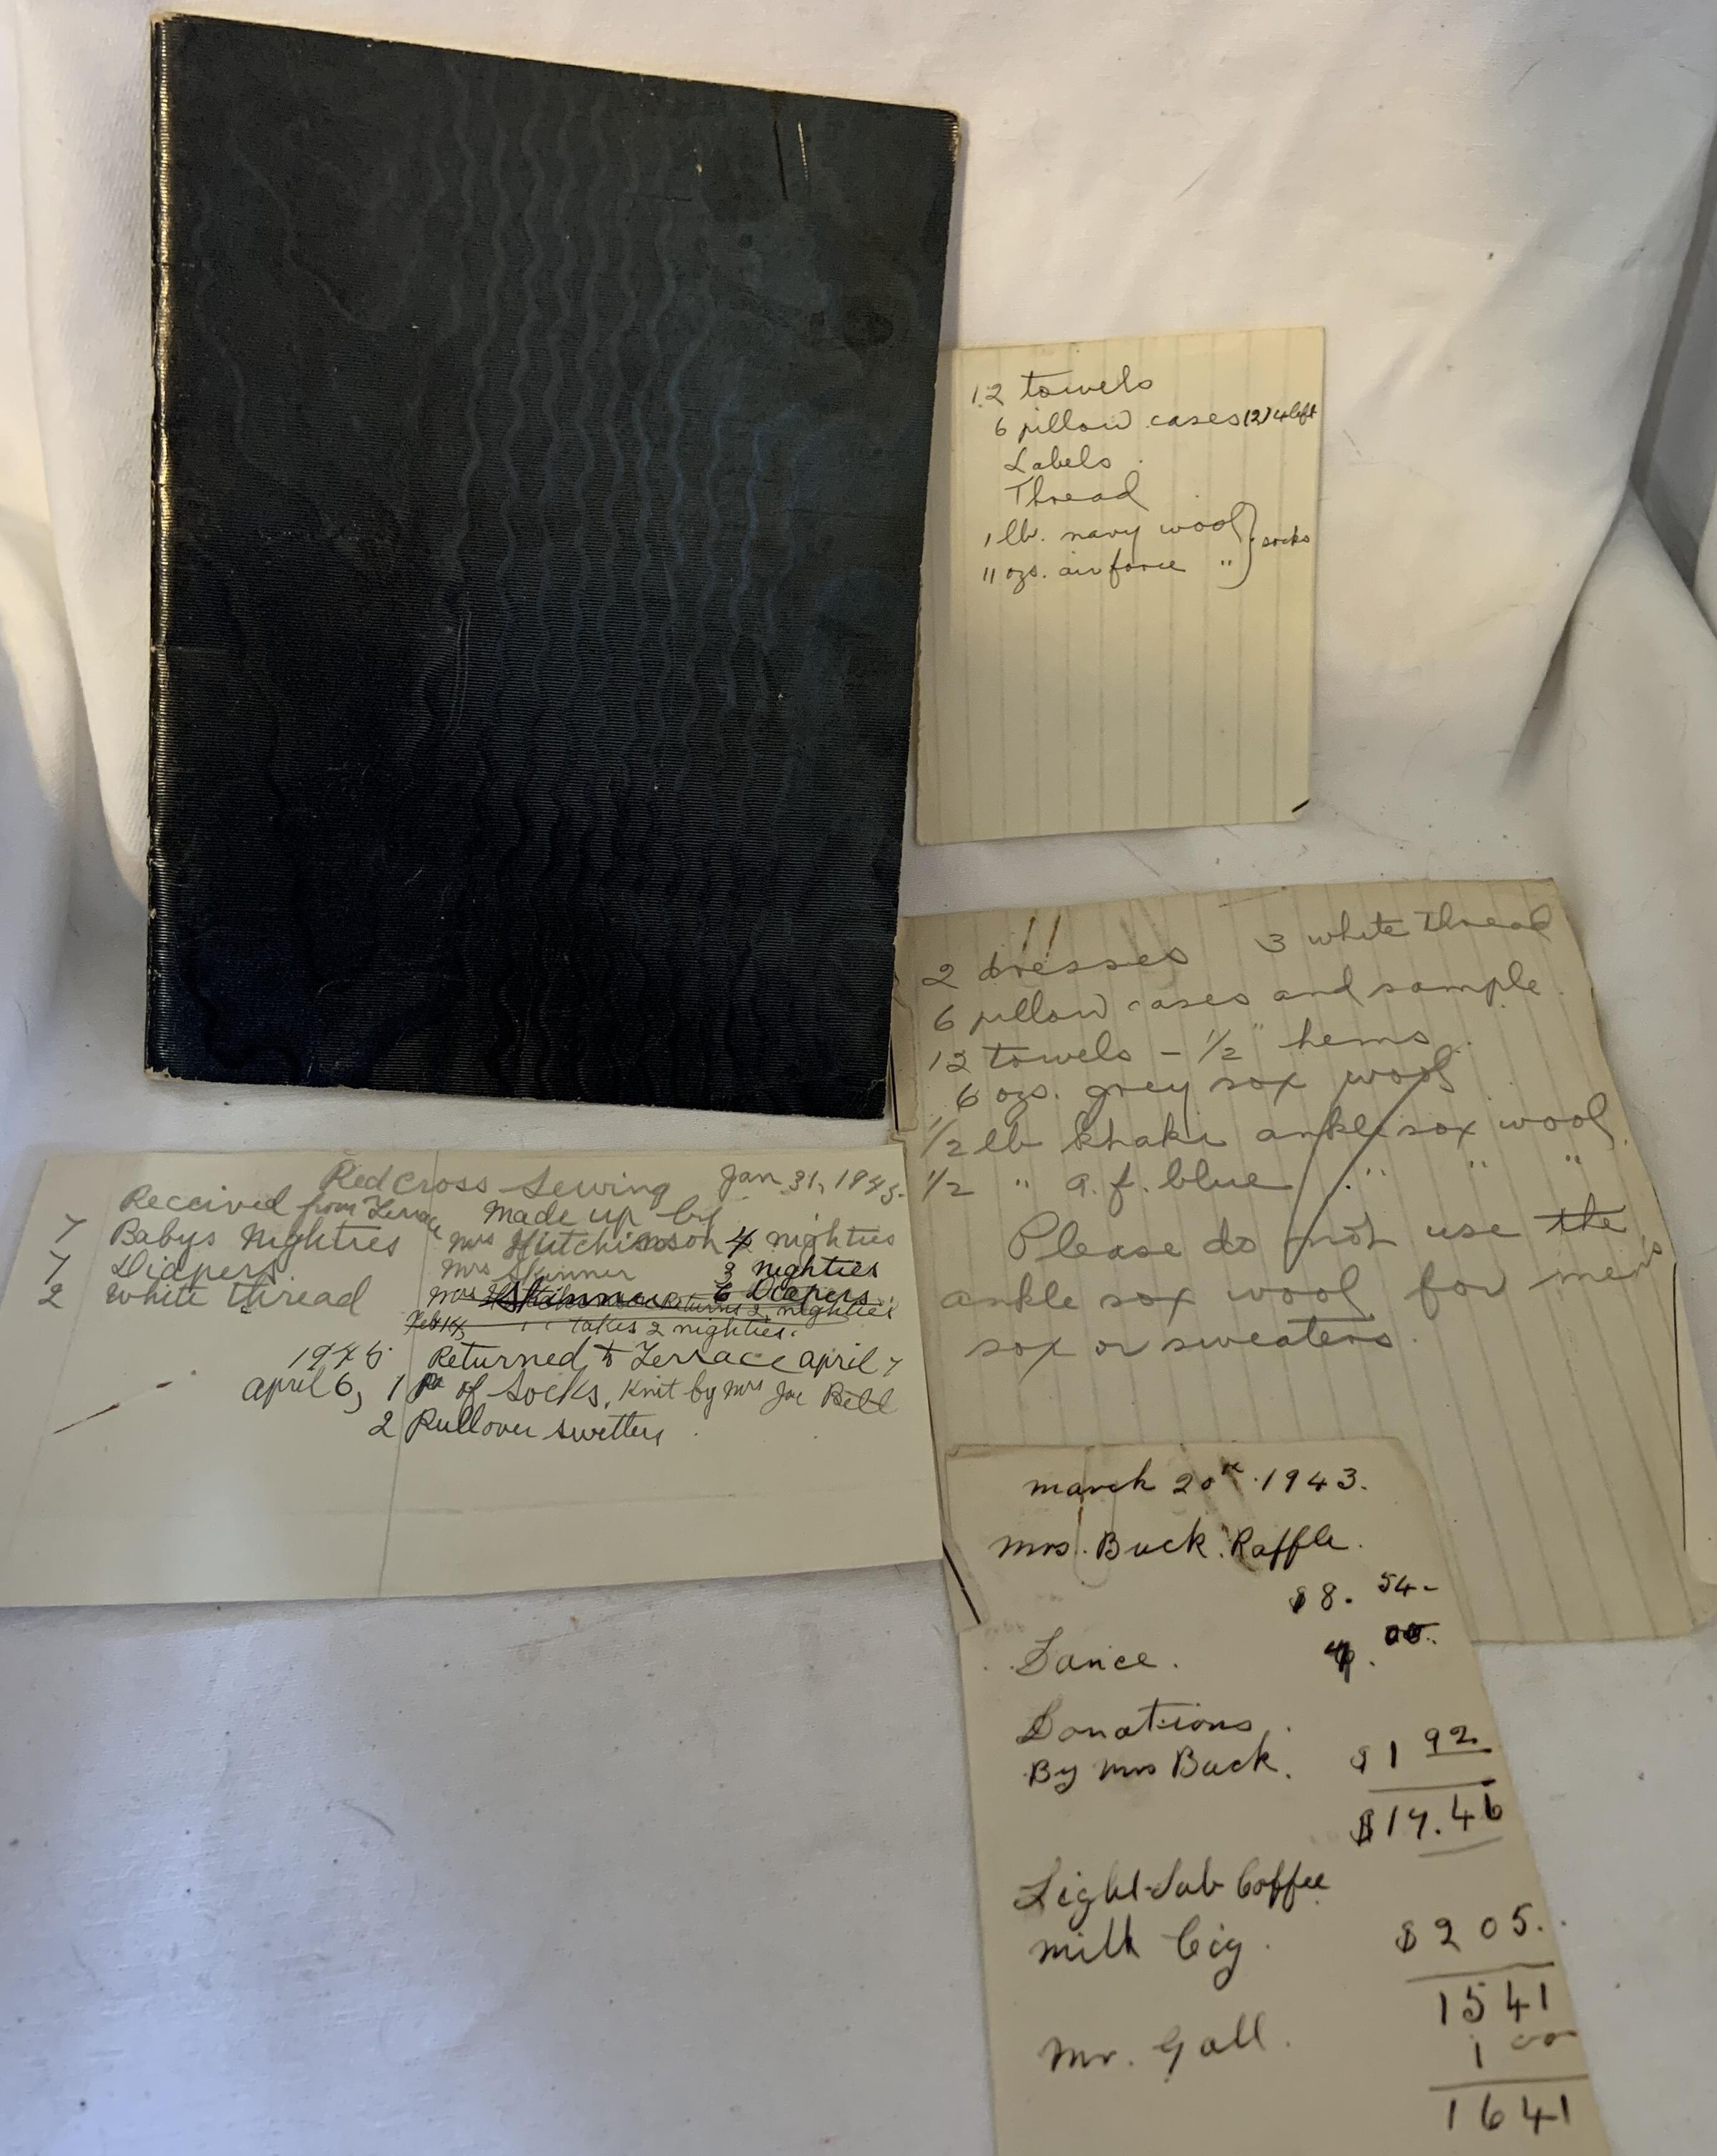 12 towels
6 pillow cases (2) 4 left
Labels
Thread
1 lb. navy wool } socks
11 ozs. air force "
2 dresses 3 white thread
6 pillow cases and sample
12 towels - 1/2" hems
6 ozs. grey sox wool
1/2 lb khaki ankle sox wool
1/2 " a.f. blue " " "
Please do not use the
ankle sox wool for mens
sox or sweaters.
Red Cross Sewing Jan 31, 1945.
Received from Terrace made up by
7 Babys Nighties Mrs Hutchinson 4 nighties
7 Diapers Mrs Skinner 3 nighties
2 White thread Mrs Skinner 6 Diapers
returns 2 nighties
Feb 14, " " takes 2 nighties.
1945 Returned to Terrace april 7
april 6, 1 Pr of Socks, Knit by Mrs Joe Bell
2 Pullover swetters
March 20th 1943.
Mrs. Buck. Raffle.
$8.54-
Dance.
Donations.
By Mrs Buck. $1 92
$17.46
Milk Cig. $2 05.
1541
Mr. Gall. 1 00
1641